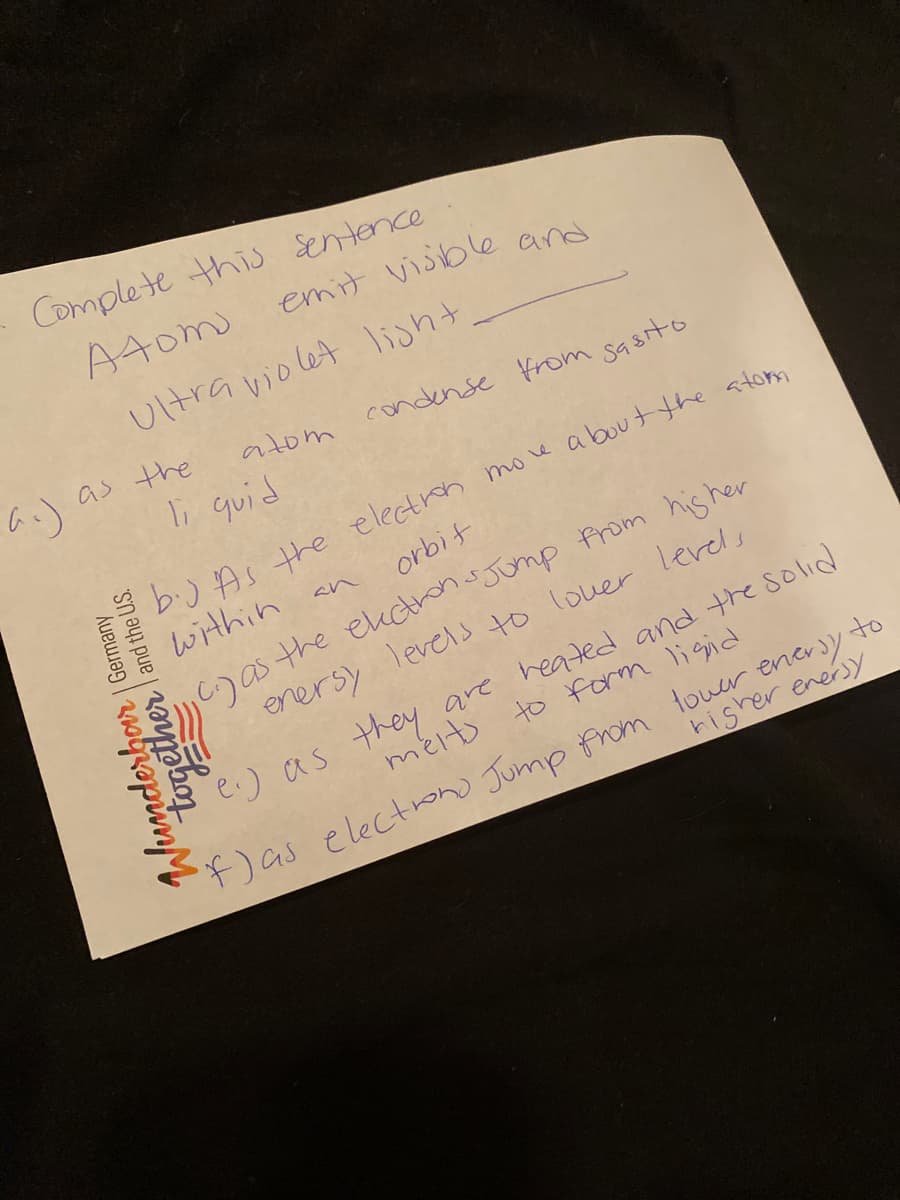 Complete this sentence
Atoms emit visible and
ultra violet light
a.) as the atom condense from gas to
li quid
b.) As the electron move about the atom
within an orbit
c.) as the electrons jump from higher
energy levels to lower levels
e.) as they are heated and the solid
melts to form liqid
f) as electrons Jump from lower energy to
higher energy
Wunderbar
together
Germany
and the U.S.